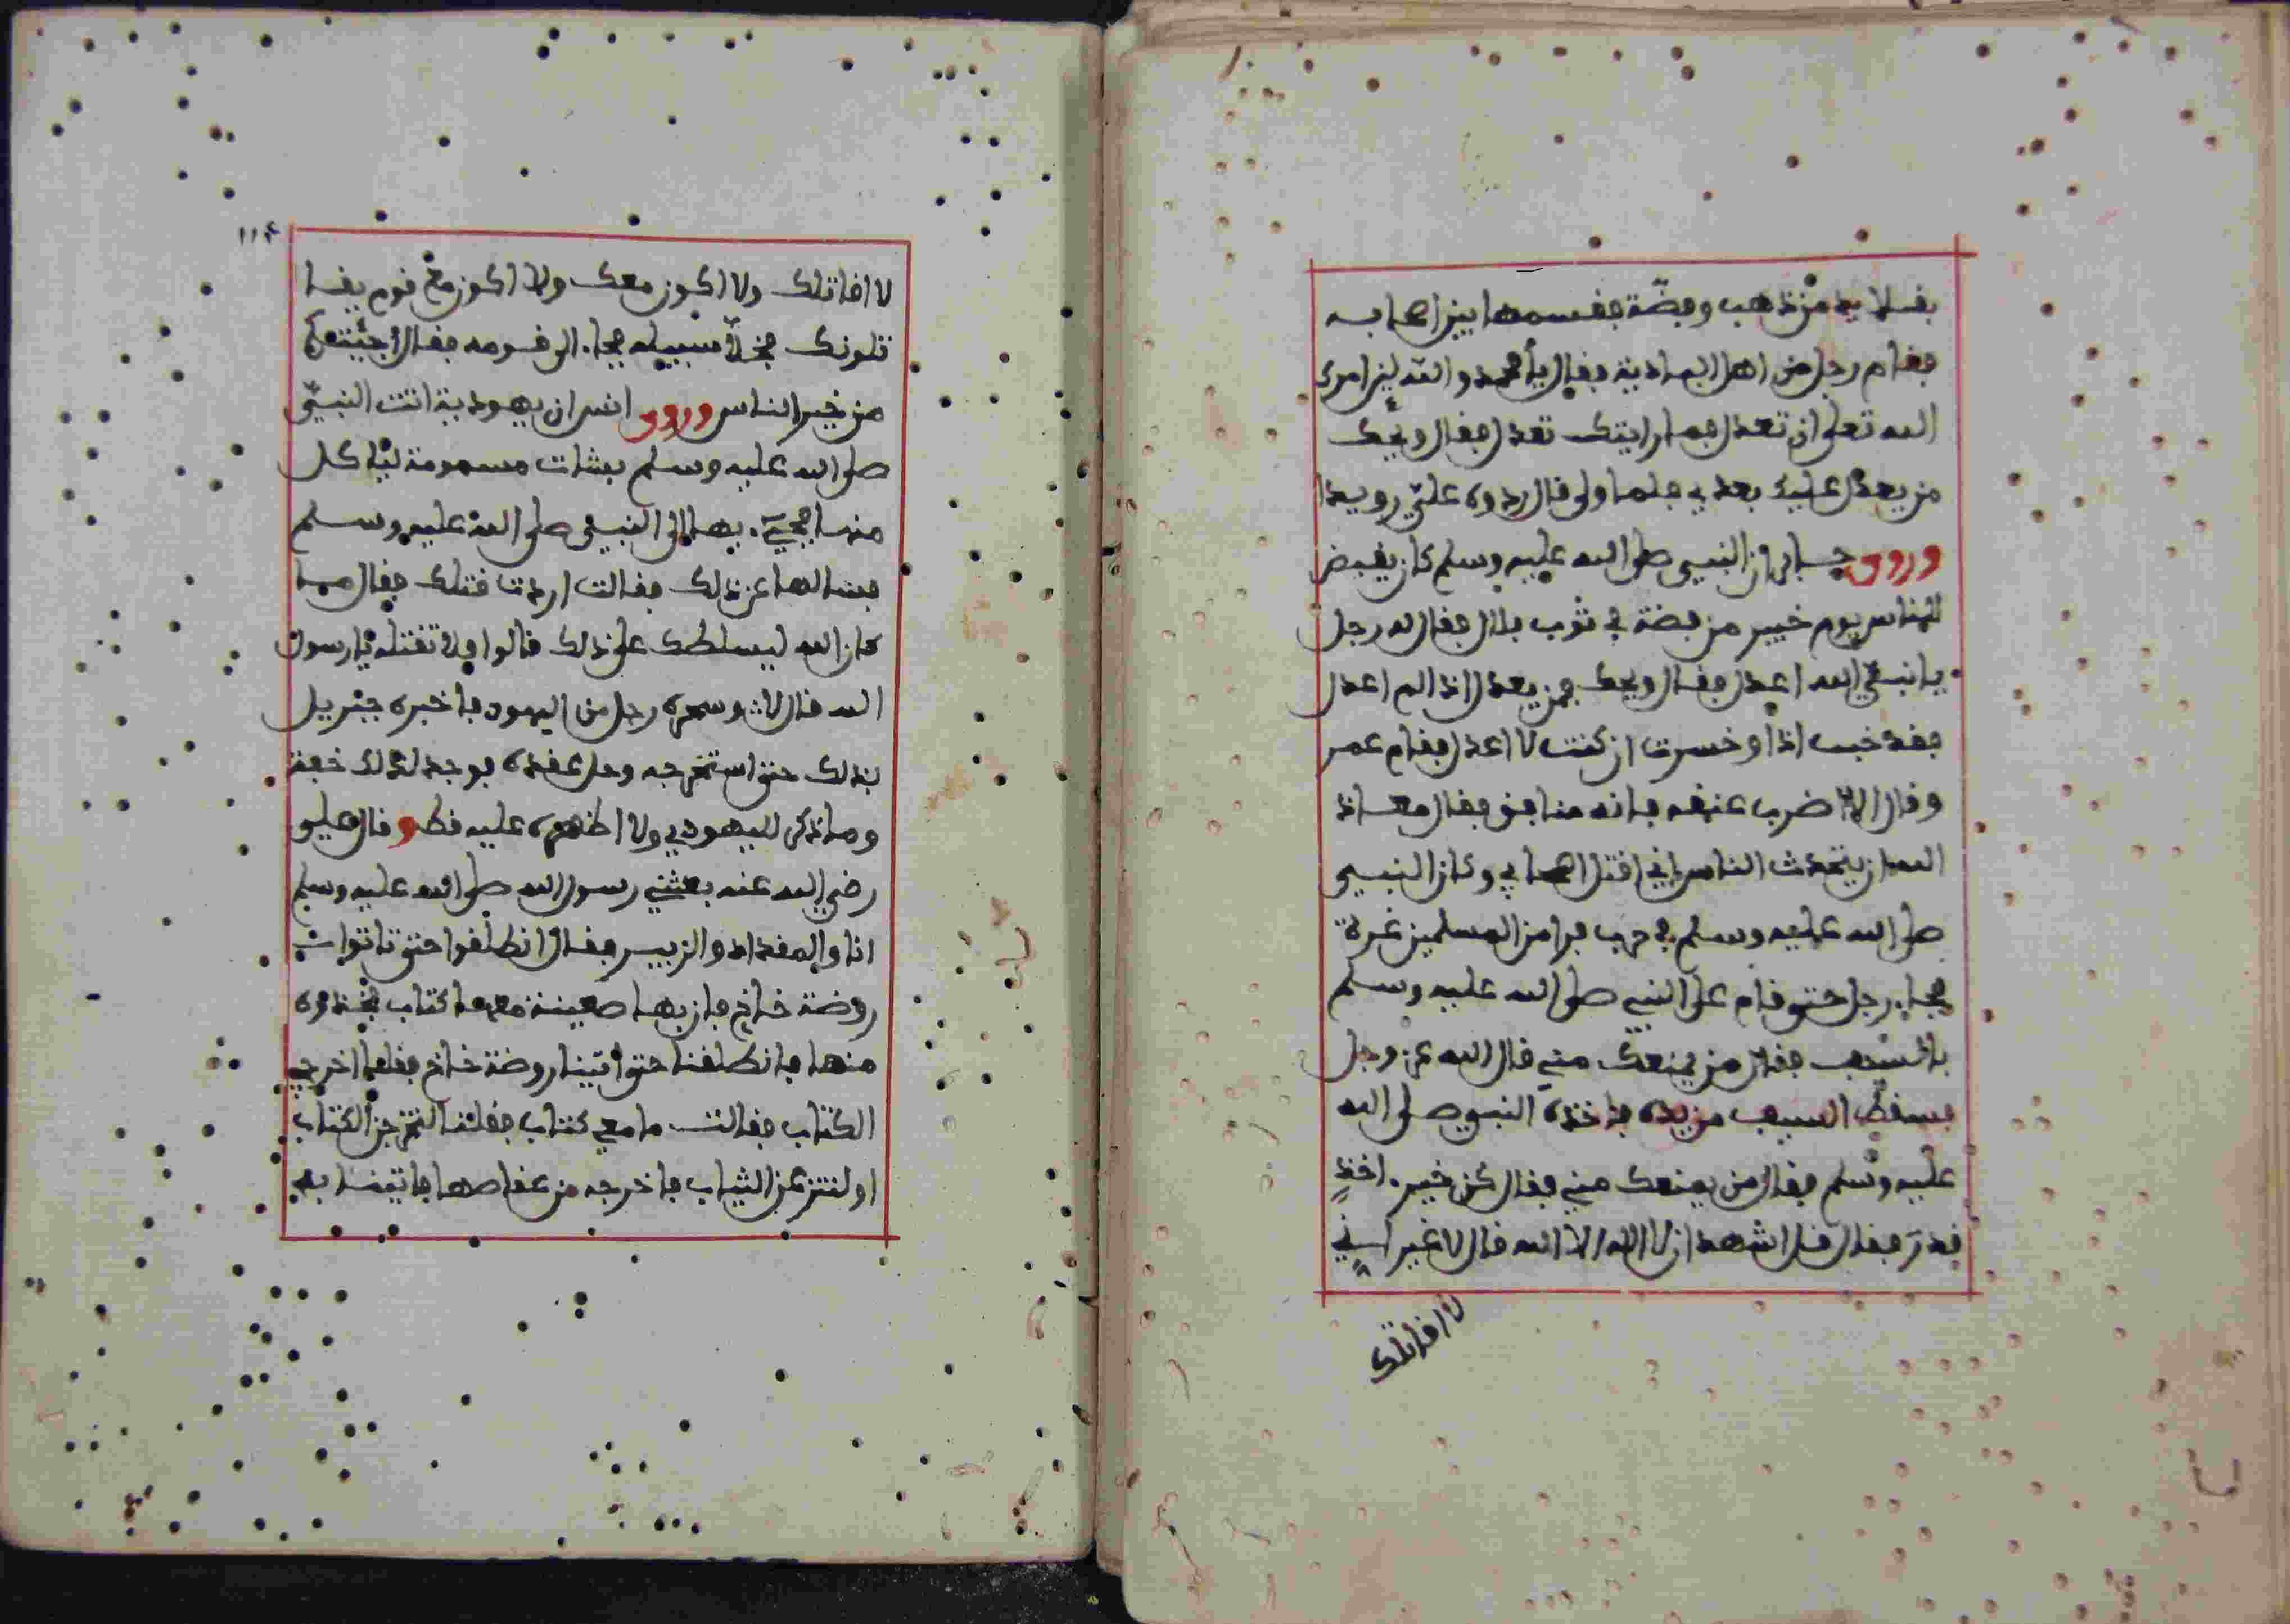 بقلايد من ذهب وفضة فقسمها بين اصحابه
فقام رجل من اهل البادية فقال يا محمد والله لين امرك
الله تعلى ان تعدل فما اراىتك تعدل فقال ويحك
من يعدل عليك بعدي فلما ولى قال ردوه علي رويدا
وروى جابر ان النبي صلى الله عليه وسلم كان يقبض
للناس يوم خيبر من فضة في ثوب بلال فقال له رجل
يا نبي الله اعدل فقال ويحك فمن يعدل اذا لم اعدل
فقد خبت اذا وخسرت ان كنت لا اعدل فقام عمر
وقال الا اضرب عنقه فانه منافق فقال معاذ
الله ان يتحدث الناس اني اقتل اصحابي وكان النبي
صلى الله عليه وسلم في حرب فرا من المسلمين غرة
فجاء رجل حتى قام على النبي صلى الله عليه وسلم
بالسيف فقال من يمنعك مني قال الله عز وجل
فسقط السيف من يده فاخذه النبي صلى الله
عليه وسلم فقال من يمنعك مني فقال كن خير ءاخذ
قدر فقال قل اشهد ان لا اله الا الله قال لا غير اني
لا اقاتلك
١١٤
لا اقاتلك ولا اكون معك ولا اكون مع قوم يقا
تلونك فخلا سبيله فجاء الى قومه فقال جيتكم
من خير الناس وروى انس ان يهودية اتت النبي
صلى الله عليه وسلم بشات مسمومة لياكل
منها فجيء بها الى النبي صلى الله عليه وسلم
فسالها عن ذلك فقالت اردت قتلك فقال ما
كان الله ليسلطك على ذلك قالوا افلا تقتله يا رسول
الله قال لا وسحره رجل من اليهود فاخبره جبريل
بذلك حتى استخرجه وحل عقده فوجد لذلك خفة
وما ذكر لليهودي ولا اظهره عليه قط وقال علي
رضي الله عنه بعثني رسول الله صلى الله عليه وسلم
انا والمقداد والزبير فقال انطلقوا حتى تاتوا
روضة خاخ فان بها ضعينة معها كتاب فخذوه
منها فانطلقنا حتى اتينا روضة خاخ فقلنا اخرجي
الكتاب فقالت ما معي كتاب فقلنا لتخرجن الكتاب
او لنتزعن الثياب فاخرجه من عقاصها فاتينا به